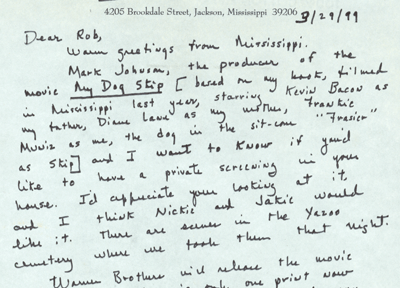 4205 Brookdale Street, Jackson, Mississippi 39206
3/29/99
Dear Rob,
Warm greetings from Mississippi.
Mark Johnson, the producer of the
movie My Dog Skip [based on my book, filmed
in Mississippi last year, starring Kevin Bacon as
my father, Diane Lane as my mother, Frankie
Muniz as me, the dog in the sit-com "Frasier"
as Skip] and I want to know if you'd
like to have a private screening in your
house. I'd appreciate your looking at it,
and I think Nickie and Jakie would
like it. There are scenes in the Yazoo
cemetery where we took them that night.
Warner Brothers will release the movie
only one print now